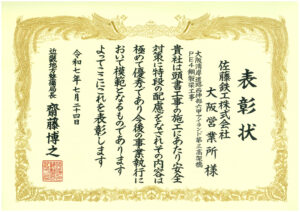 表彰状
佐藤鉄工株式会社
大阪営業所 様
大阪湾岸道路西伸部六甲アイランド第三高架橋
PE4鋼製梁工事
貴社は頭書工事の施工にあたり安全
対策に特段の配慮をなされその内容は
極めて優秀であり今後の事業執行に
おいて模範となるものであります
よってここにこれを表彰します
令和七年七月二十四日
近畿地方整備局長
齋藤博之